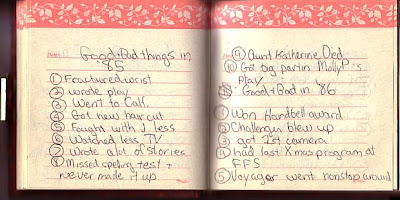 Good + Bad things in
'85
① Fractured wrist
② wrote play
③ Went to Calif.
④ Got new haircut
⑤ Fought with J less
⑥ Watched less TV
⑦ Wrote a lot of stories
⑧ Missed spelling test +
never made it up
⑨ Aunt Katherine Died
⑩ Got big part in Molly P's
play
Good + Bad in '86
① Won Handbell award
② Challenger blew up
③ got 1st camera
④ had last Xmas program at
FFS
⑤ Voyager went nonstop around